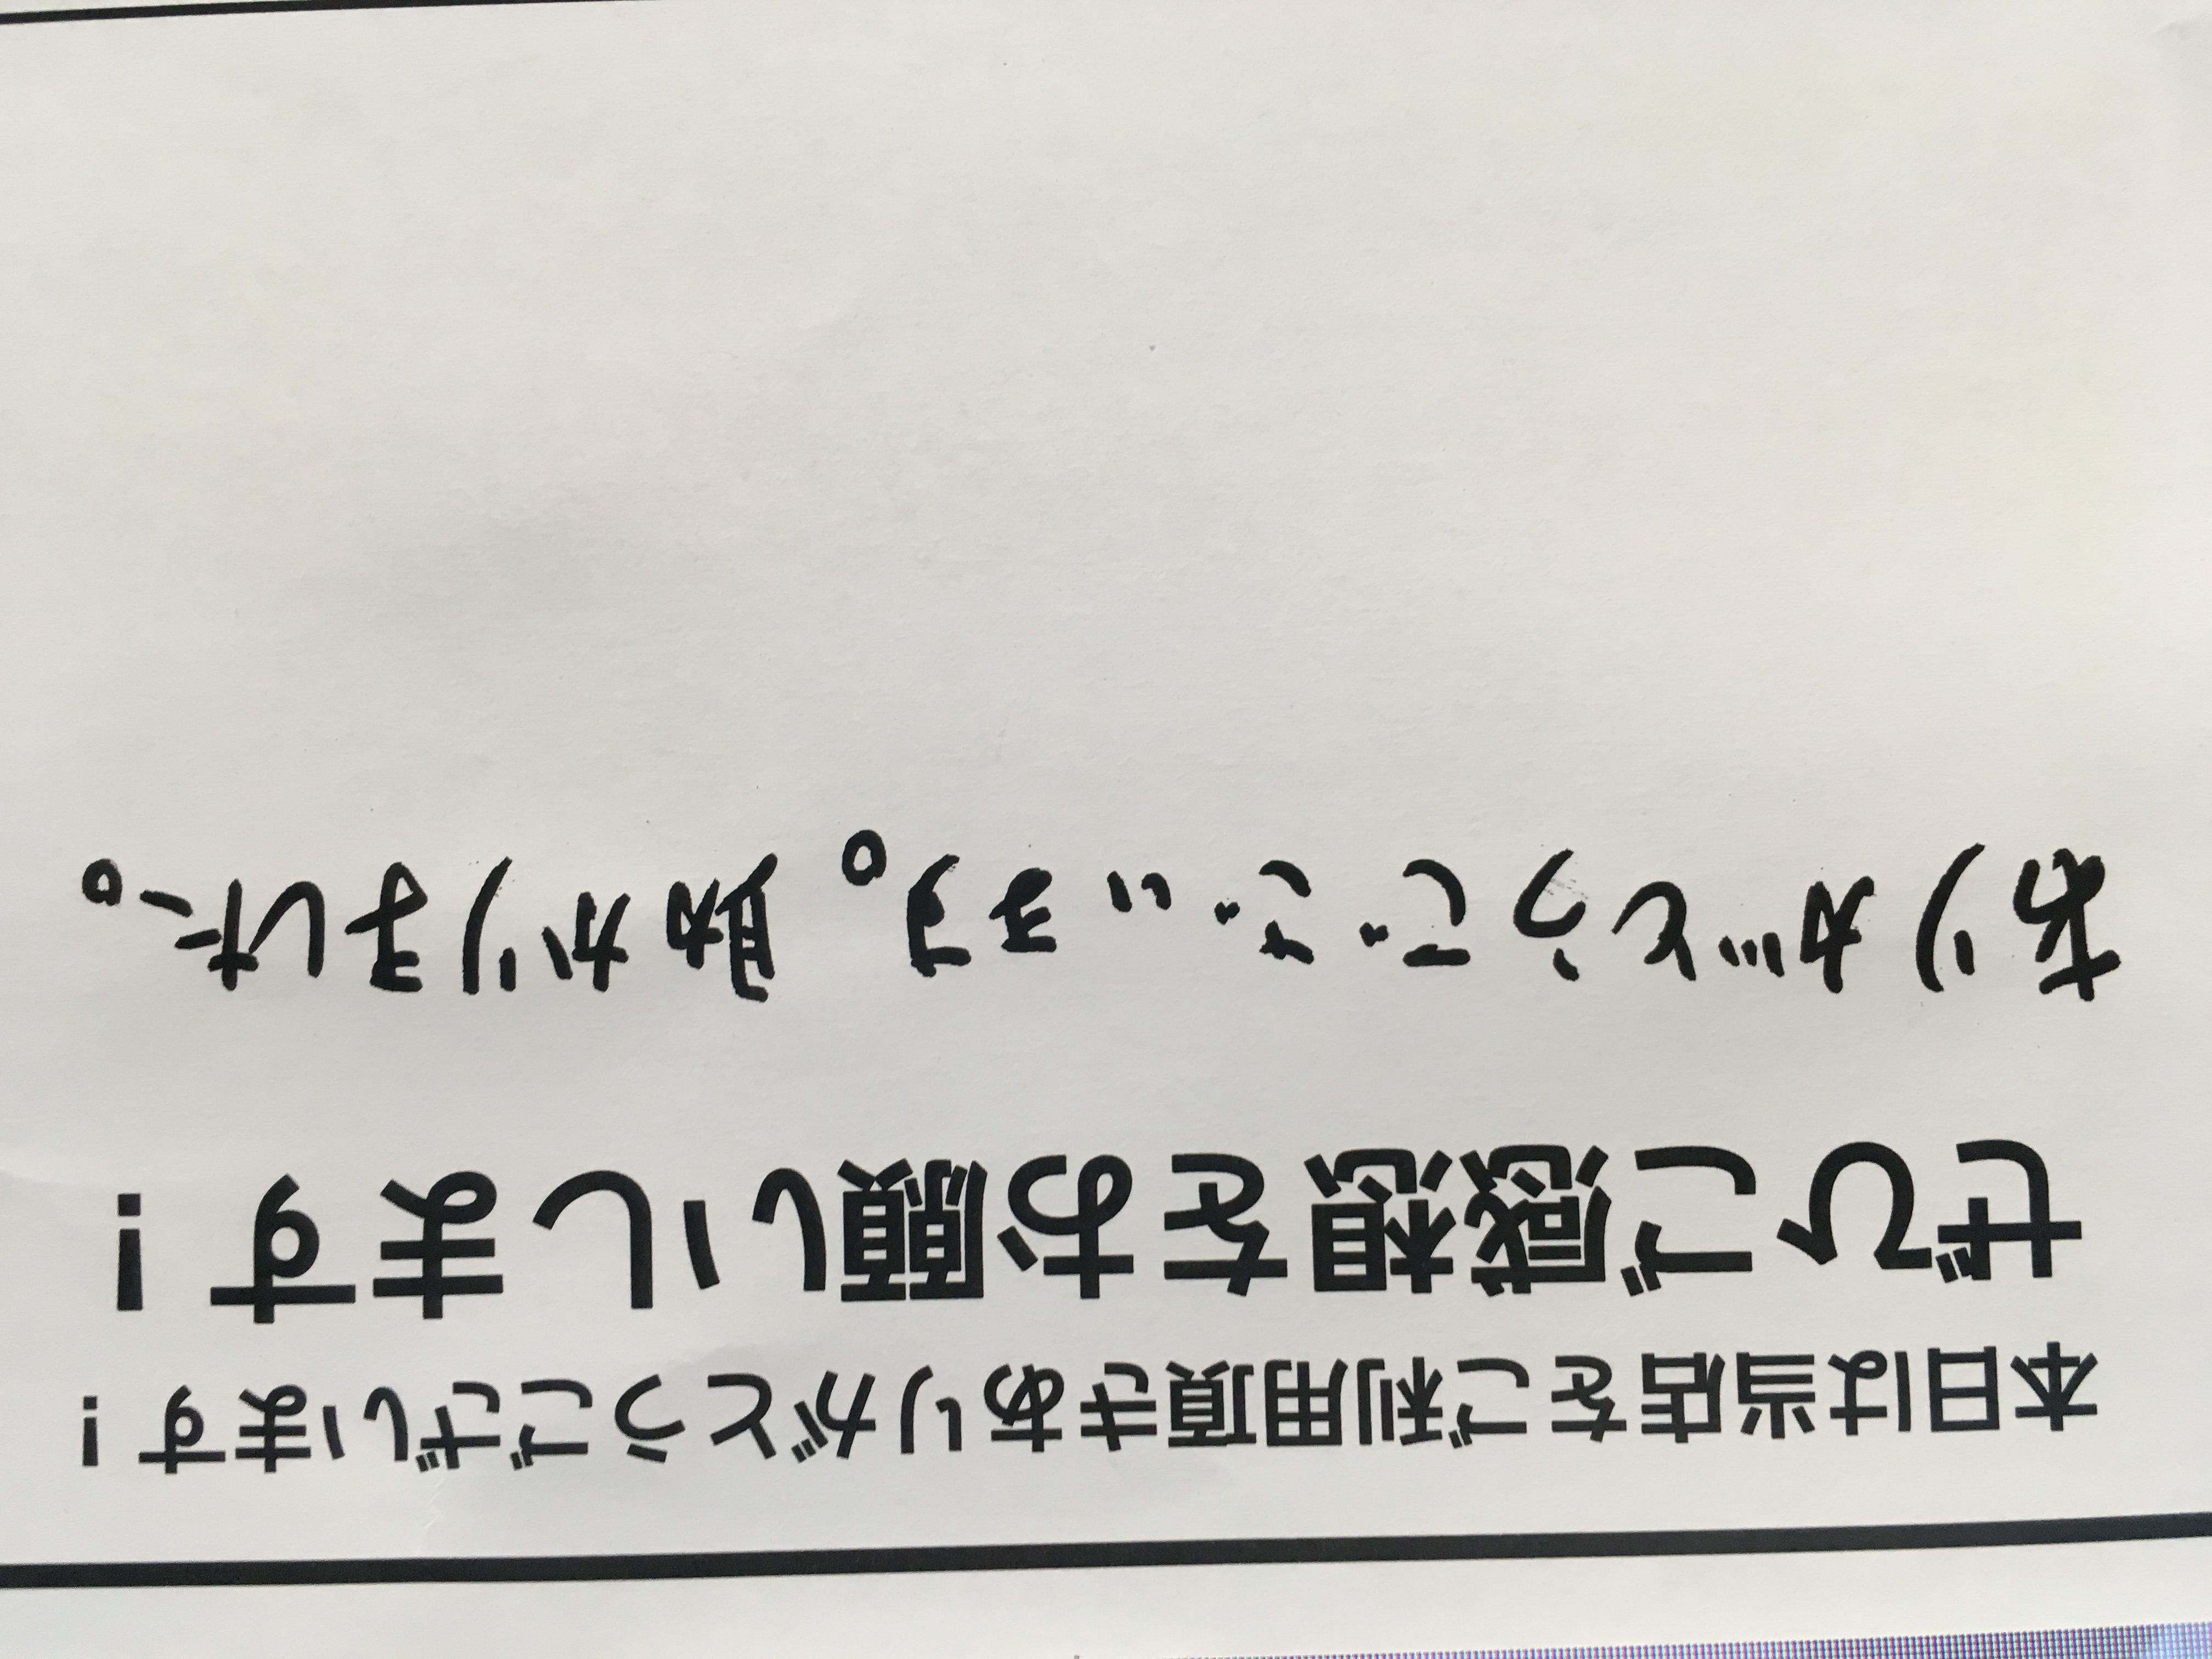 本日は当店をご利用頂きありがとうございます！
ぜひご感想をお願いします！
ありがとうございます。助かりました。